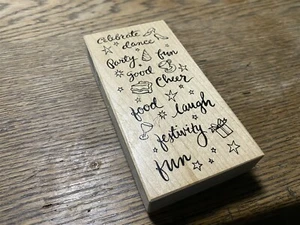 Celebrate
dance
Party fun
good
Cheer
food laugh
festivity
fun